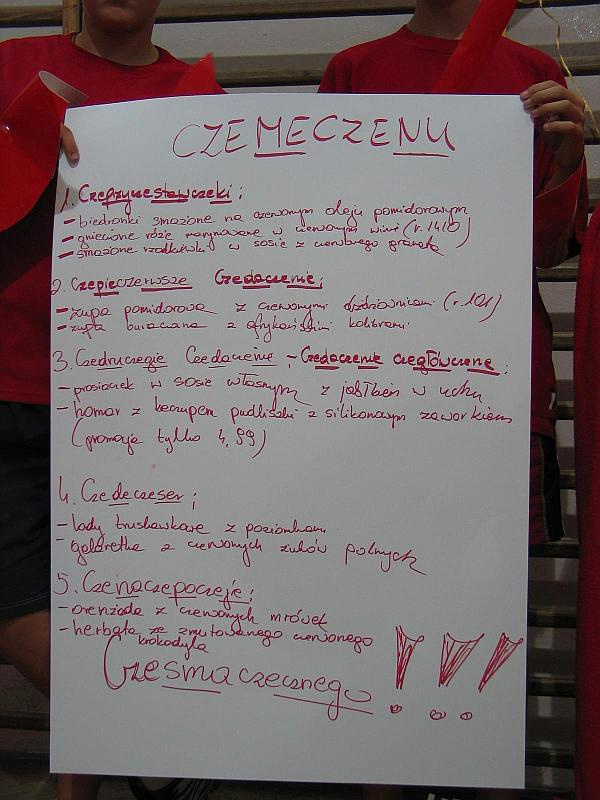 CZEMECZENU
1. Czeprzyczestawczeki:
- biedronki smażone na czerwonym oleju pomidorowym
- gniecione róże marynowane w czerwonym winie (r. 1410)
- smażone rzodkiewki w sosie z czerwonego granata
2. Czepieczerwsze Czedaczenie:
- zupa pomidorowa z czerwonymi dżdżownicami (r. 101)
- zupa buraczana z afrykańskimi kolibrami
3. Czedruczegie Czedaczenie - Czedaczenie czegłówczene:
- prosiaczek w sosie własnym z jabłkiem w uchu
- homar z keczupem pudliszki z silikonowym zaworkiem
(promocja tylko 4,99)
4. Czedeczeser:
- lody truskawkowe z poziomkami
- galaretka z czerwonych żuków polnych
5. Czenaczepoczeje:
- oranżada z czerwonych mrówek
- herbata ze zmutowanego czerwonego
krokodyla
Czesmaczecznego !!!